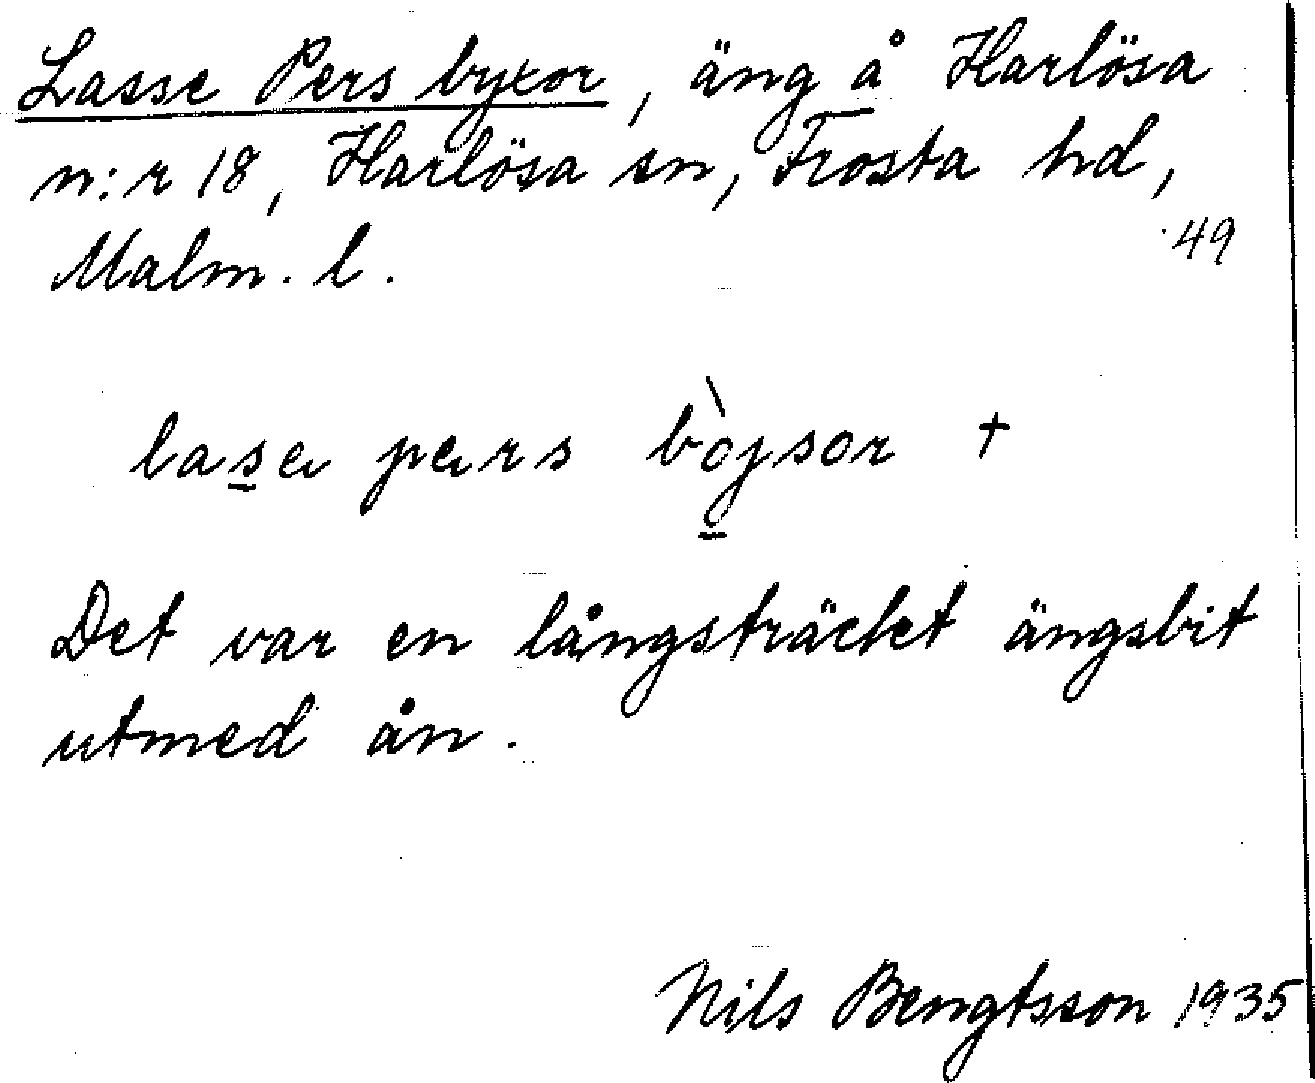 Lasse Pers byxor, äng å Harlösa
n:r 18, Harlösa sn, Frosta hd,
Malm. l.
49
lase pers bòjsor +
Det var en långsträckt ängsbit
utmed ån.
Nils Bengtsson 1935